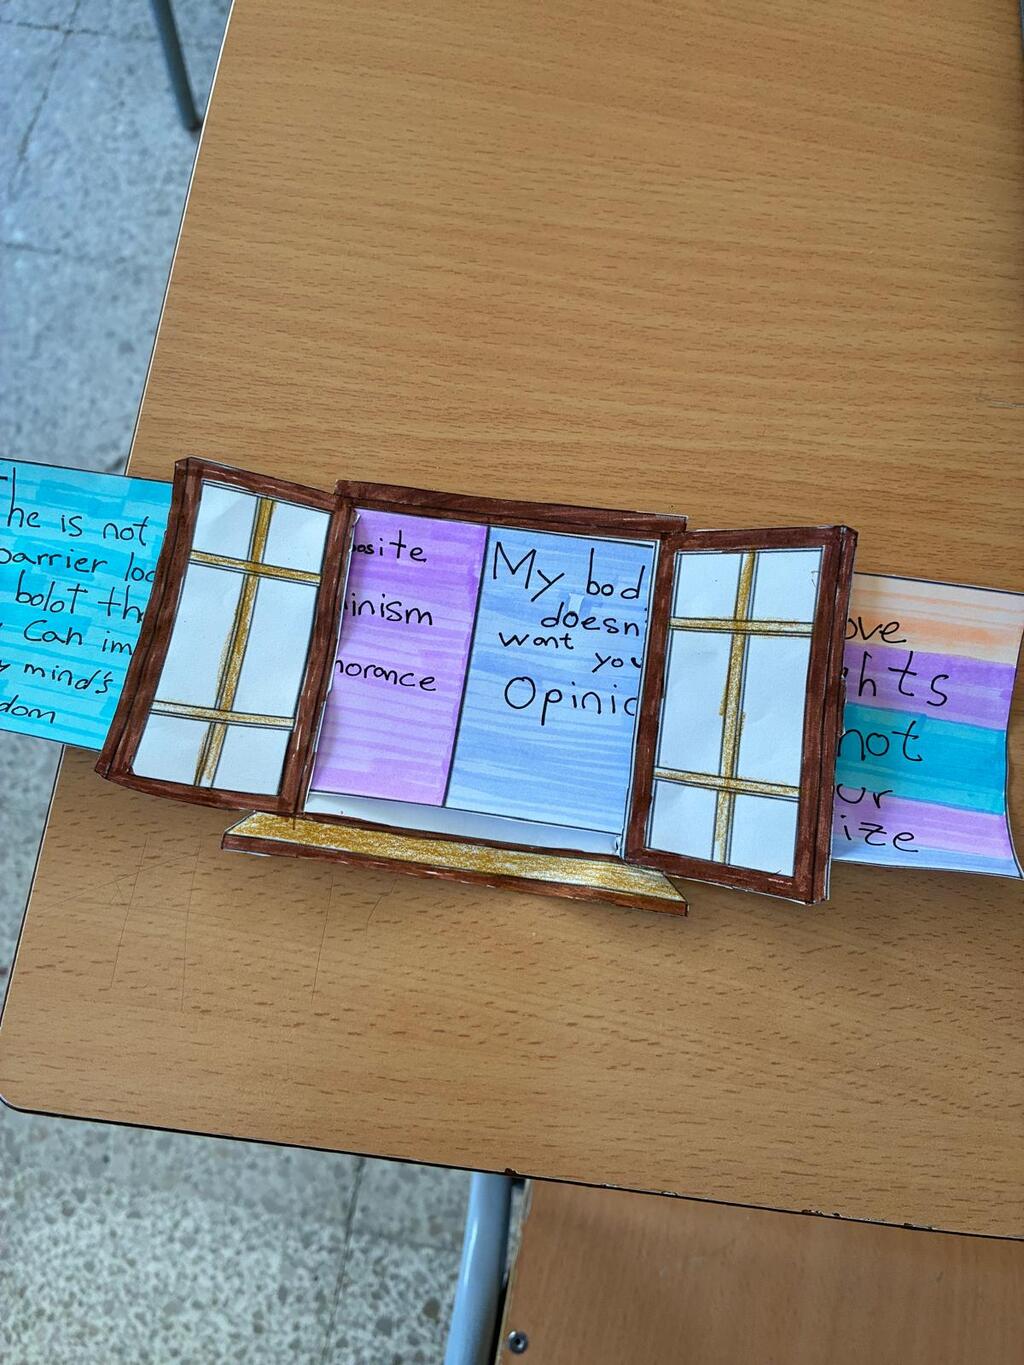 The is not
barrier loc
bolot the
Can im
mind's
dom
osite
inism
norance
My bod
doesn
want you
Opinic
ove
hts
not
ur
ize